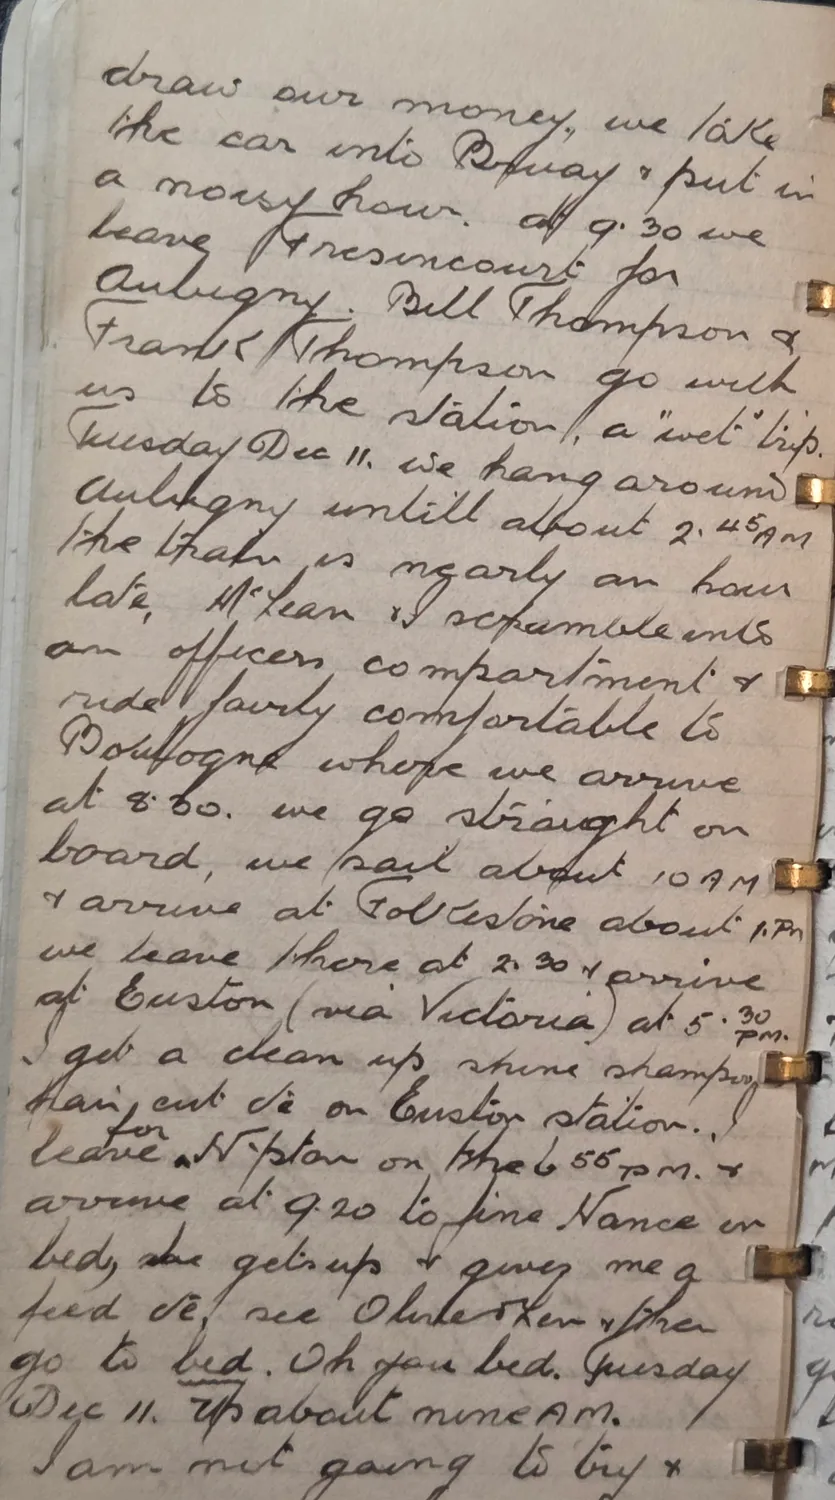 draw our money, we take
the car into Bruay & put in
a noisy hour. at 9.30 we
leave Fresincourt for
Aubigny. Bill Thompson &
Frank Thompson go with
us to the station, a "wet" trip.
Tuesday Dec 11. we hang around
Aubigny untill about 2.45 AM
the train is nearly an hour
late, McLean & I scramble into
an officers compartment &
ride fairly comfortable to
Boulogne where we arrive
at 8.30. we go straight on
board, we sail about 10 AM
& arrive at Folkestone about 1.PM
we leave there at 2.30 & arrive
at Euston (via Victoria) at 5.30 PM.
I get a clean up shine shampoo,
hair cut &c on Euston station. I
leave for N'pton on the 6 55 PM. &
arrive at 9.20 to fine Nance in
bed, she gets up & gives me a
feed &c, see Olive & Ken & then
go to bed. Oh you bed. Tuesday
Dec 11. Up about nine AM.
I am not going to try &